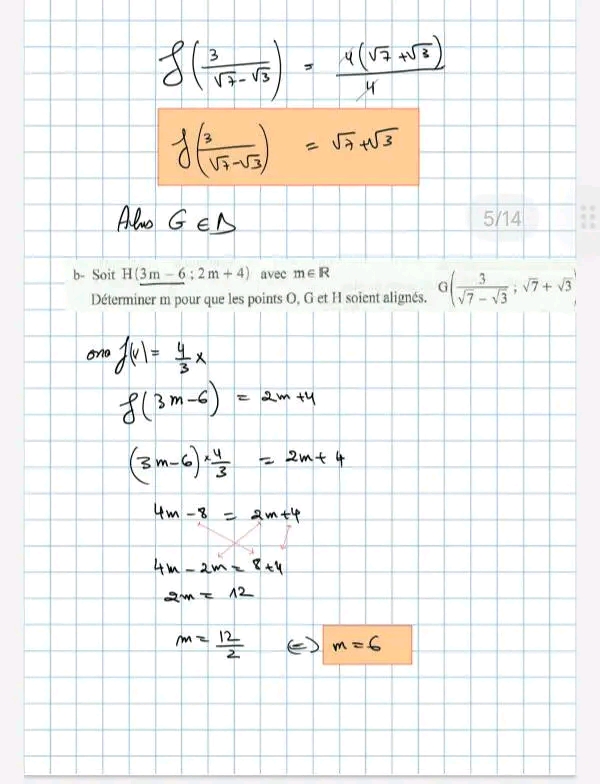 f(3/(√7-√3)) = 4(√7+√3)/4
f(3/(√7-√3)) = √7+√3
Alors G ∈ Δ
5/14
b- Soit H(3m - 6 ; 2m + 4) avec m ∈ ℝ
Déterminer m pour que les points O, G et H soient alignés. G(3/(√7 - √3) ; √7 + √3)
ona f(x) = 4/3 x
f(3m-6) = 2m+4
(3m-6)×4/3 = 2m+4
4m-8 = 2m+4
4m-2m = 8+4
2m = 12
m = 12/2 ⇔ m = 6